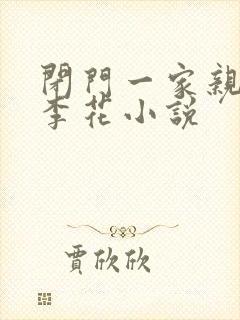 閉門一家親
李花小說
賈欣欣